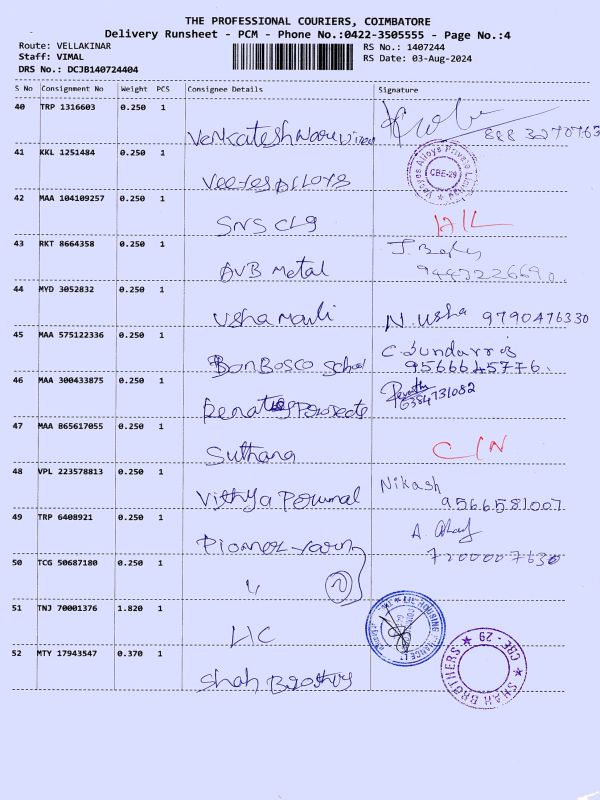 THE PROFESSIONAL COURIERS, COIMBATORE
Delivery Runsheet - PCM - Phone No.:0422-3505555 - Page No.:4
Route: VELLAKINAR
RS No.: 1407244
Staff: VIMAL
RS Date: 03-Aug-2024
DRS No.: DCJB140724404
S No Consignment No Weight PCS Consignee Details Signature
40 TRP 1316603 0.250 1
Venkatesh
41 KKL 1251484 0.250 1
Vee yes Alloys Private Limited
CBE-29
42 MAA 104109257 0.250 1
SNS Clg
43 RKT 8664358 0.250 1
AVB Metal
44 MYD 3052832 0.250 1
Usha N. Usha 9790476330
45 MAA 575122336 0.250 1
Don Bosco School 9566645776
46 MAA 300433875 0.250 1
6384731082
47 MAA 865617055 0.250 1
Suthana C/N
48 VPL 223578813 0.250 1
Vithya Perumal Nikash
9566581007
49 TRP 6408921 0.250 1
50 TCG 50687180 0.250 1
51 TNJ 70001376 1.820 1
LIC
LIC HOUSING
52 MTY 17943547 0.370 1
Shah Brothers
SHAH BROTHERS CBE - 29